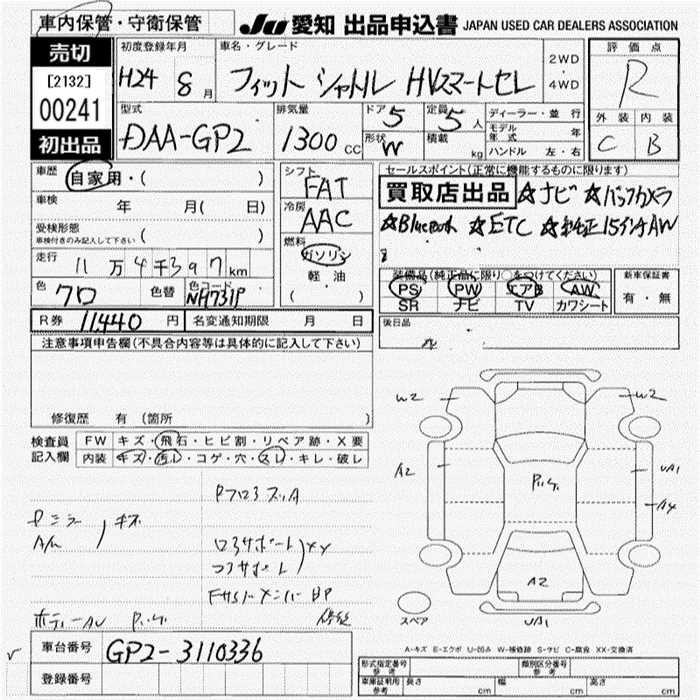 車内保管・守衛保管
JU 愛知 出品申込書 JAPAN USED CAR DEALERS ASSOCIATION
売切
[2132]
00241
初出品
初度登録年月
H24 8 月
車名・グレード
フィット シャトル HVスマートセレ
2WD
・
4WD
評価点
R
外装 内装
C B
型式
DAA-GP2
排気量
1300 CC
ドア 5
形状 W
定員 5 人
積載 kg
ディーラー・並行
モデル年式 年
ハンドル 左・右
車歴 自家用・( )
車検 年 月( 日)
受検形態
車検付きのみ記入して下さい ( )
走行 11 万 4 千 397 km
色 クロ 色替 色コード NH731P
シフト
FAT
冷房
AAC
燃料
ガソリン
軽・油
( )
セールスポイント(正常に機能するものに限ります)
買取店出品 ☆ナビ ☆バックカメラ
☆Bluetooth ☆ETC ☆純正15インチAW
装備品(純正品に限り○をつけてください)
PS PW エアB AW
SR ナビ TV カワシート
新車保証書
有・無
R券 11440 円 名変通知期限 月 日
後日品
注意事項申告欄(不具合内容等は具体的に記入して下さい)
修復歴 有(箇所 )
検査員記入欄
FW キズ・飛石・ヒビ割・リペア跡・X要
内装 キズ・汚レ・コゲ・穴・スレ・キレ・破レ
キズ
ロアサポート XX
W2 W2
A2 UA1
A4
A2
UA1
スペア
A-キズ E-エクボ U-凹み W-補修跡 S-サビ C-腐食 XX-交換済
車台番号 GP2-3110336
登録番号
形式指定番号 参考
類別区分番号 参考
車庫証明用 参考 長さ cm 幅 cm 高さ cm